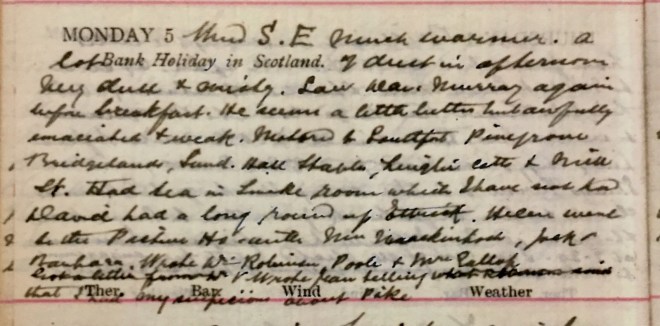 MONDAY 5 Wind S.E much warmer. a
lot Bank Holiday in Scotland. of dust in afternoon
very dull & misty. Saw Alex. Murray again
before breakfast. He seems a little better but awfully
emaciated & weak. Motored to Pinegrove
Bridgelands, Sund. Hall Stables, & Mill
St. Had tea in Smoke room which I have not had
David had a long round up Ettrick. Helen went
to the Pasture Ho with Mrs Jack &
Barbara. Wrote Wm Robinson Poole & Mrs
Got a letter from & Wrote Jean telling what Robinson said
that I had my suspicions about Pike
Ther. Bar. Wind Weather